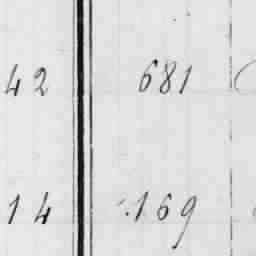 42 681
14 169